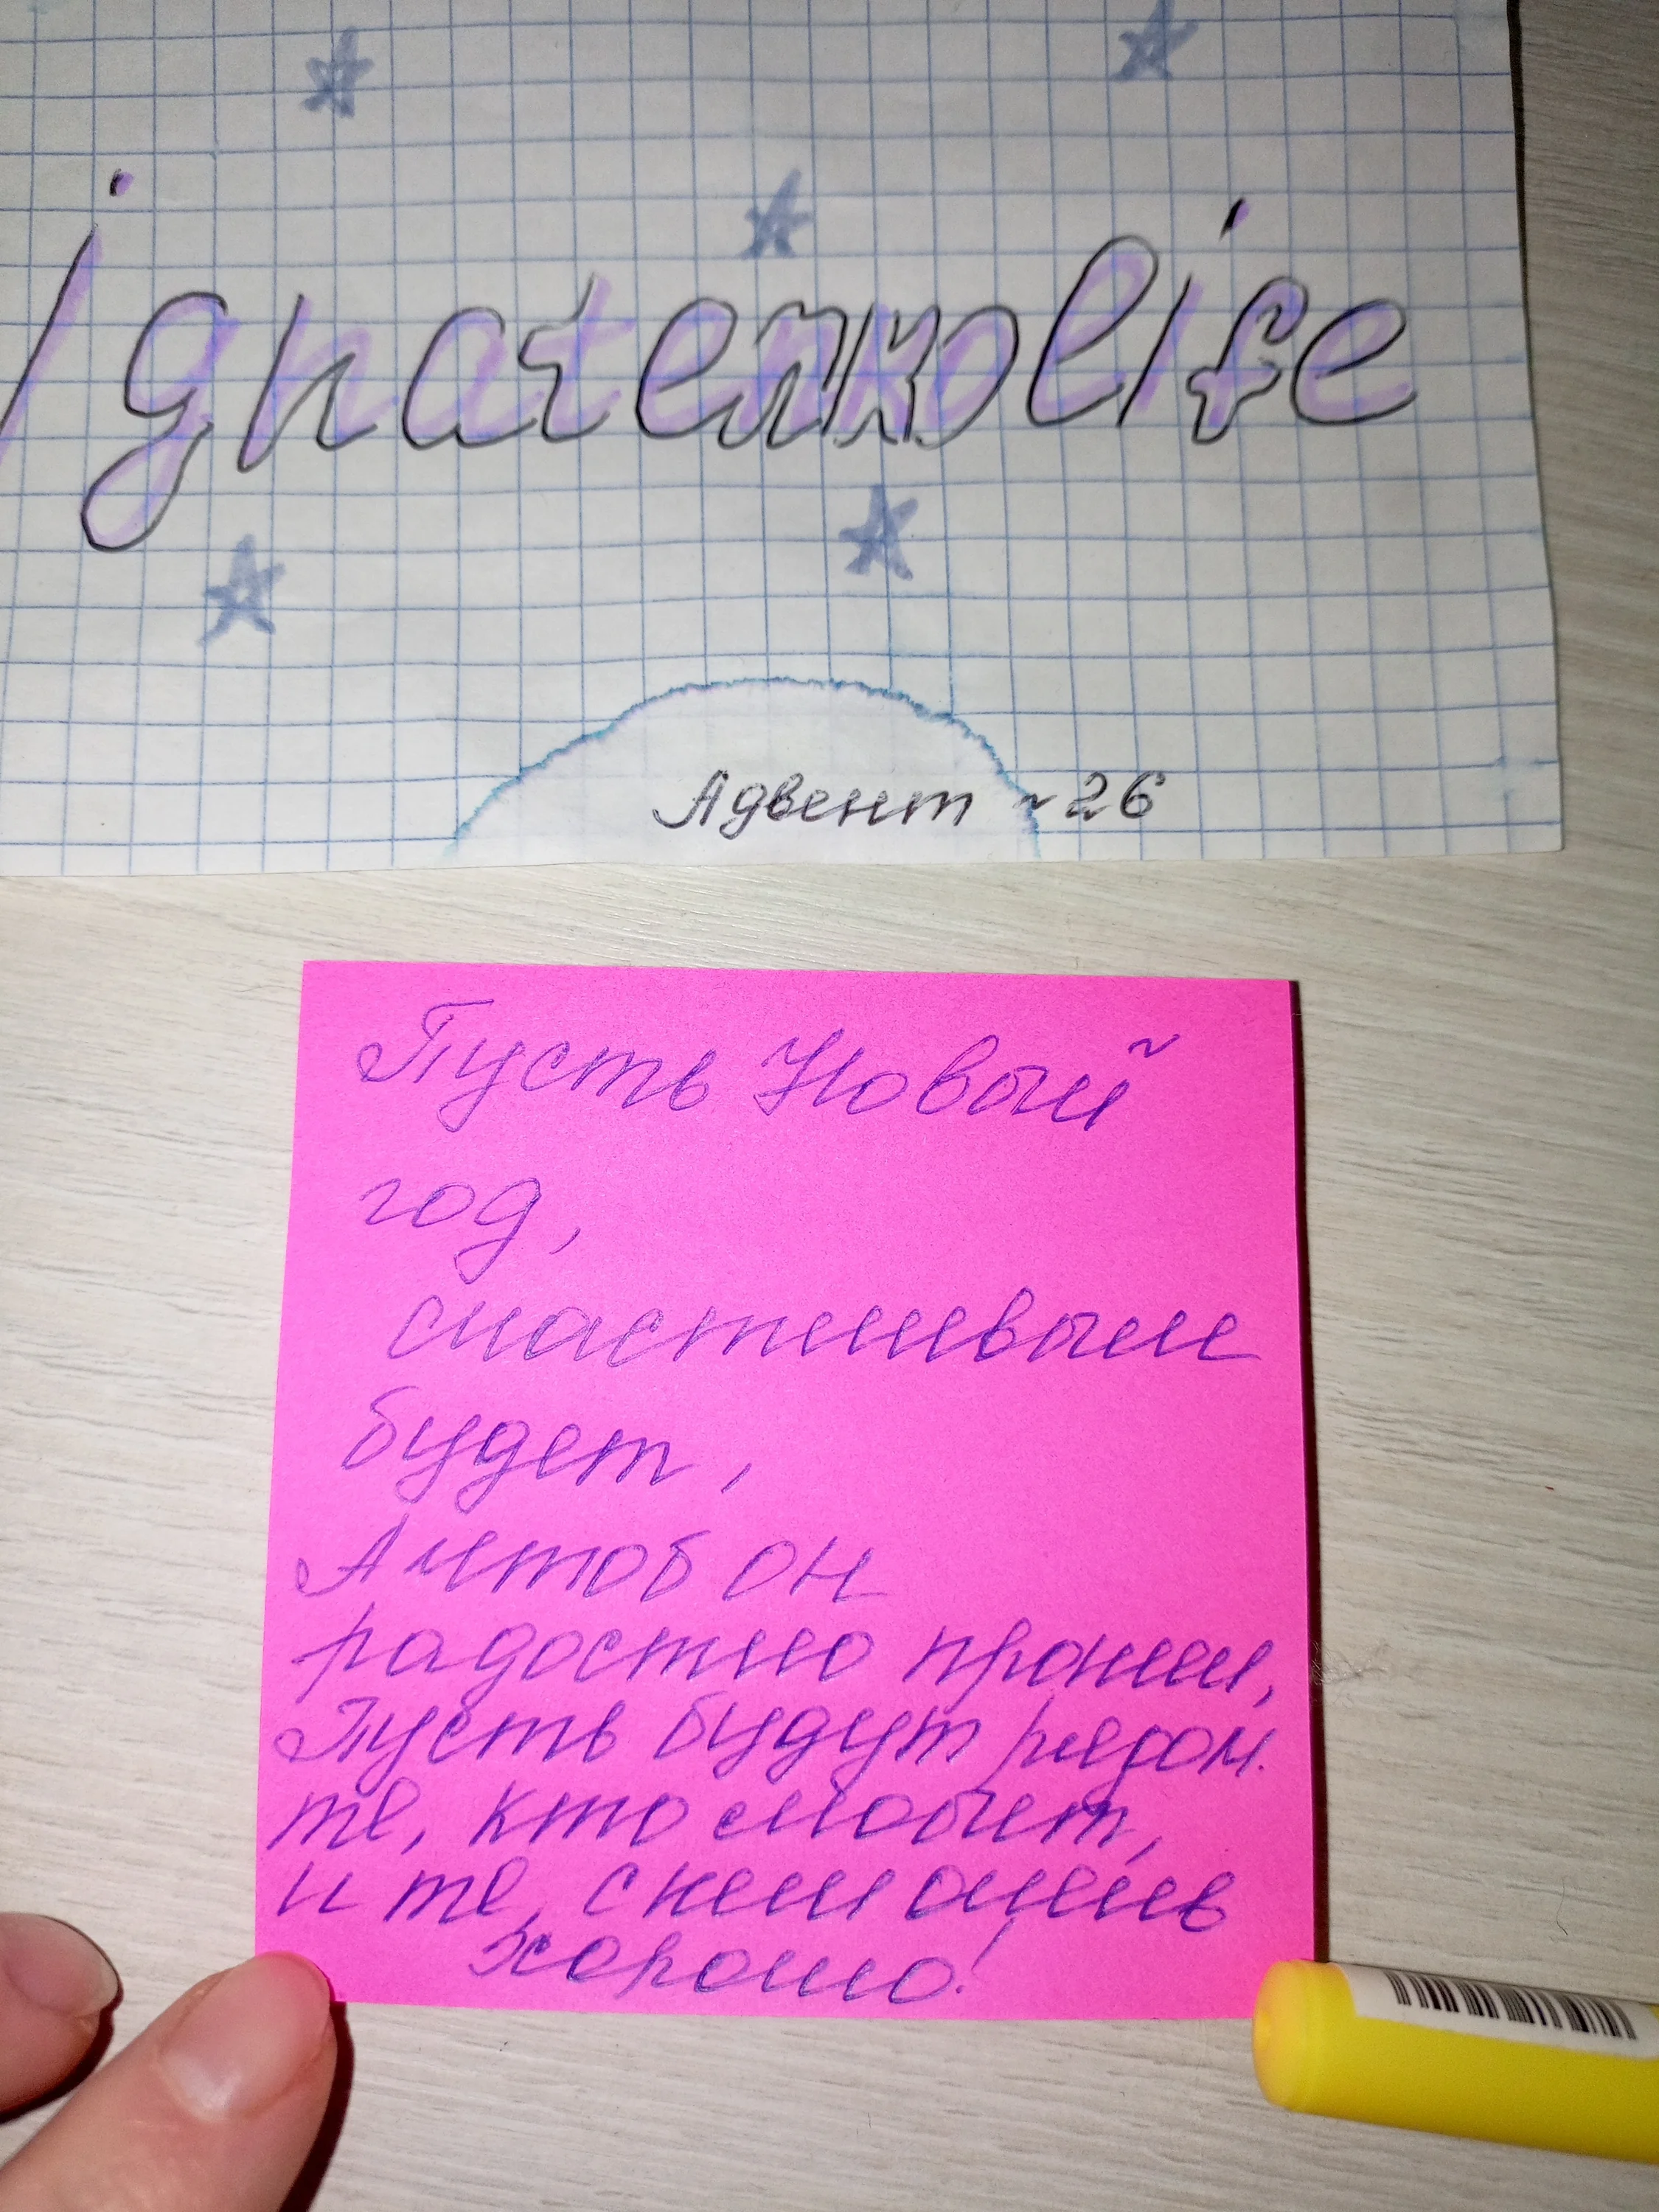 Ignatenkolife
Адвент ~ 26
Пусть Новый
год,
счастливым
будет,
А чтоб он
радостно прошел,
Пусть будут рядом
те, кто любит,
и те, с кем очень
хорошо!